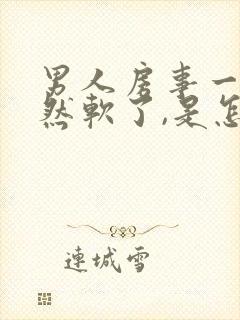 男人房事一
然軟了,是怎
連城雪